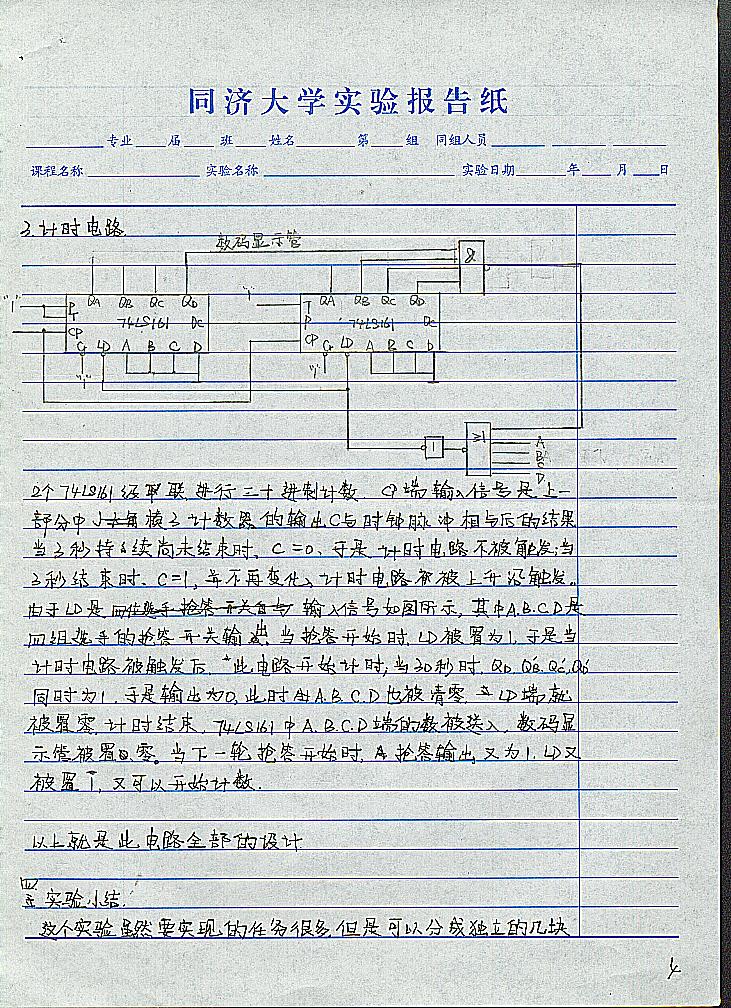 同济大学实验报告纸
专业 届 班 姓名 第 组 同组人员
课程名称 实验名称 实验日期 年 月 日
3.计时电路.
数码显示管
&
"1" P T CP QA QB QC QD 74LS161 Oc Cr LD A B C D "1"
"1" T P CP QA QB QC QD 74LS161 Oc Cr LD A B C D "1"
1 ≥1
A
B
C
D
2个74LS161级联,进行三十进制计数. CP端输入信号是上一
部分中 模3计数器的输出C与时钟脉冲相与后的结果
当3秒持续尚未结束时、C=0,于是计时电路不被触发;当
3秒结束时、C=1,并不再变化、计时电路被上升沿触发。
由于LD是 输入信号如图所示,其中A.B.C.D是
四组选手的抢答开关输出,当抢答开始时,LD被置为1,于是当
计时电路被触发后,此电路开始计时;当30秒时,QD,QB',QC',QD'
同时为1,于是输出为0,此时由A.B.C.D也被清零,LD端就
被置零,计时结束,74LS161中A.B.C.D端的数被送入,数码显
示管被置零。当下一轮抢答开始时,抢答输出又为1,LD又
被置1,又可以开始计数.
以上就是此电路全部的设计
四.实验小结.
这个实验虽然要实现的任务很多,但是可以分成独立的几块
4